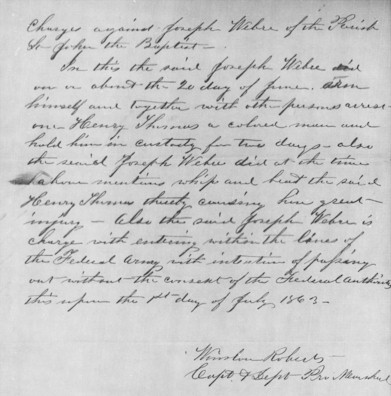 Charges against Joseph Webre of the Parish
St John the Baptist —
In this the said Joseph Webre did
on or about the 20 day of June. arm
himself and together with other persons arrest
one Henry Thomas a colored man and
hold him in custody for two days — also
the said Joseph Webre did at the time
above mentions whip and beat the said
Henry Thomas thereby causing him great
injury — Also the said Joseph Webre is
Charge with entering within the lines of
the Federal Army with intention of passing
out without the consent of the Federal Authority
this upon the 1st day of July 1863 —
Winslow Roberts
Capt. & Dept Pro Marshal